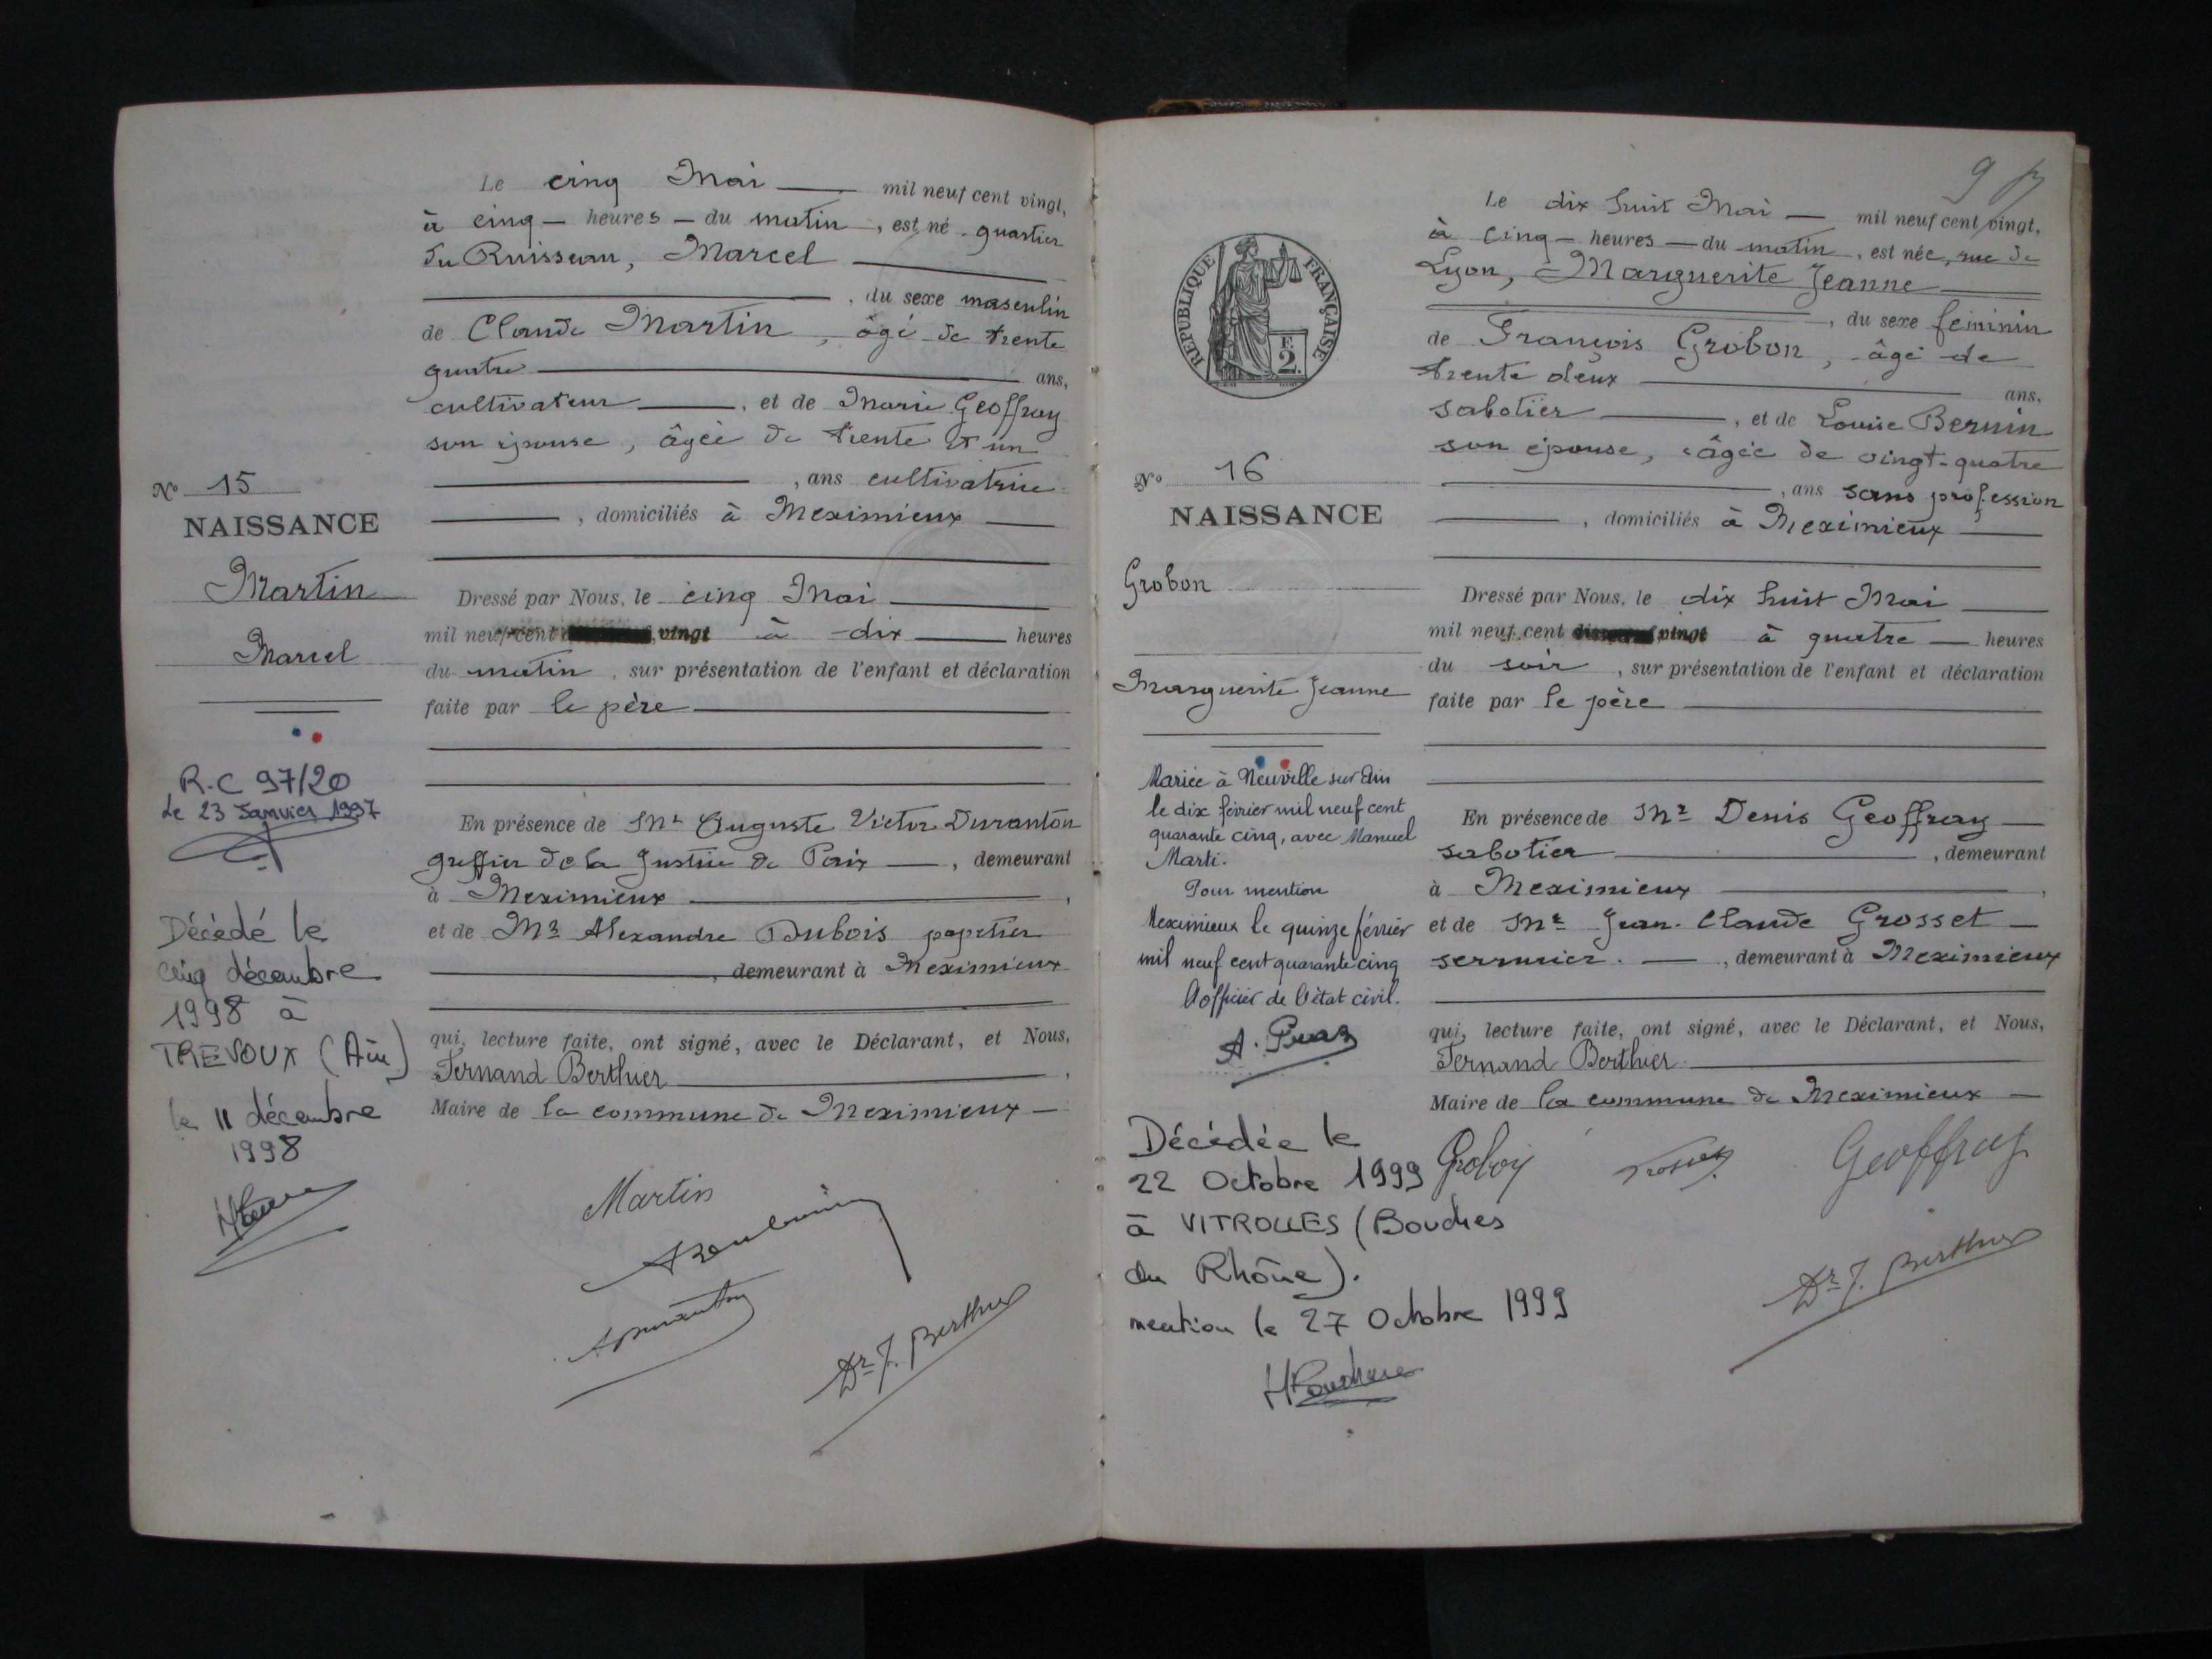 Le cinq Mai mil neuf cent vingt,
à cinq heures du matin, est né quartier
du Ruisseau, Marcel
, du sexe masculin
de Claude Martin, âgé de trente
quatre ans,
cultivateur, et de Marie Geoffray
son épouse, âgée de trente et un
, ans cultivatrice
, domiciliés à Meximieux
No 15
NAISSANCE
Martin
Marcel
Dressé par Nous, le cinq Mai
mil neuf cent vingt à dix heures
du matin, sur présentation de l'enfant et déclaration
faite par le père
R.C 97/20
Le 23 Janvier 1997
Décédé le
cinq décembre
1998 à
TREVOUX (Ain)
le 11 décembre
1998
En présence de Mr Auguste Victor Duranton
greffier de la Justice de Paix, demeurant
à Meximieux,
et de Mr Alexandre Dubois papetier
, demeurant à Meximieux
qui, lecture faite, ont signé, avec le Déclarant, et Nous,
Fernand Berthier,
Maire de la commune de Meximieux
Martin
Dr F. Berthier
9
Le dix huit Mai mil neuf cent vingt,
à cinq heures du matin, est née, rue de
Lyon, Marguerite Jeanne
, du sexe féminin
de François Grobon, âgé de
trente deux ans,
sabotier, et de Louise Bernin
son épouse, âgée de vingt-quatre
, ans sans profession
, domiciliés à Meximieux
RÉPUBLIQUE FRANÇAISE
F.
2.
No 16
NAISSANCE
Grobon
Marguerite Jeanne
Dressé par Nous, le dix huit Mai
mil neuf cent vingt à quatre heures
du soir, sur présentation de l'enfant et déclaration
faite par le père
Mariée à Neuville sur Ain
le dix février mil neuf cent
quarante cinq, avec Manuel
Marti.
Pour mention
Meximieux le quinze février
mil neuf cent quarante cinq
L'officier de l'état civil.
En présence de Mr Denis Geoffray
sabotier, demeurant
à Meximieux,
et de Mr Jean-Claude Grosset
serrurier., demeurant à Meximieux
qui, lecture faite, ont signé, avec le Déclarant, et Nous,
Fernand Berthier
Maire de la commune de Meximieux
Décédée le
22 Octobre 1999
à VITROLLES (Bouches
du Rhône).
mention le 27 Octobre 1999
Grobon
Geoffray
Dr F. Berthier